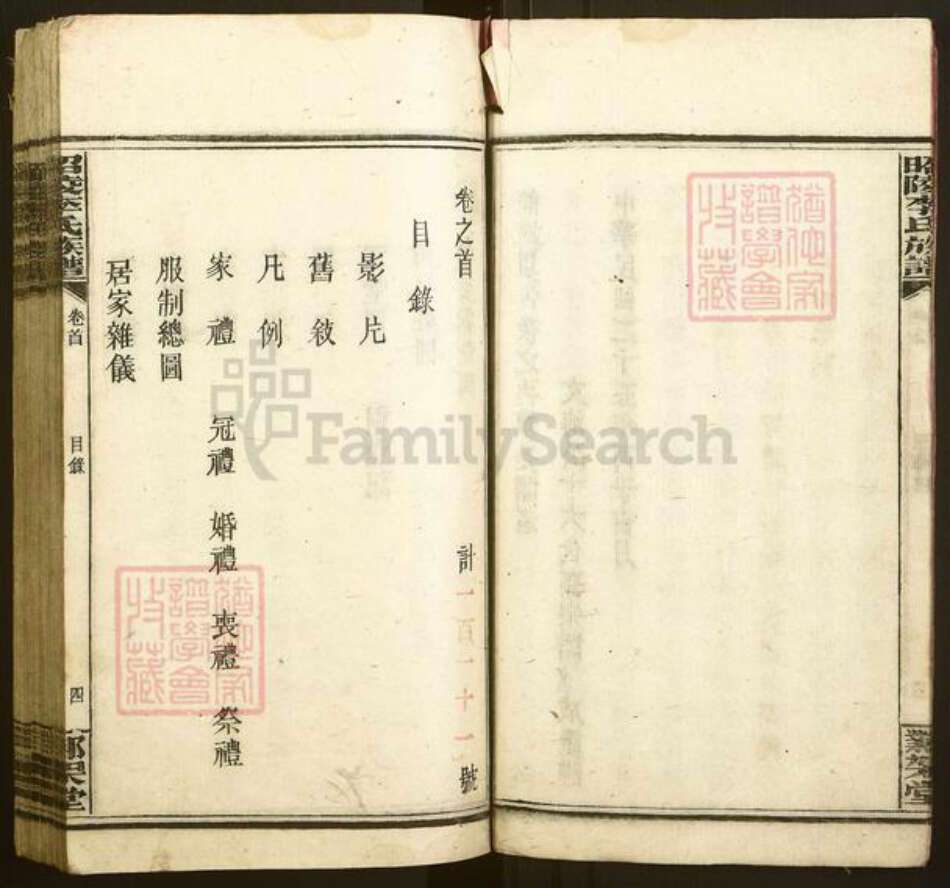 昭陵李氏族譜
卷之首 計一百一十一號
目錄
影片
舊敘
凡例
家禮 冠禮 婚禮 喪禮 祭禮
服制總圖
居家雜儀
昭陵李氏族譜 卷首 目錄 四
譜學會
收藏
譜學會
收藏
FamilySearch